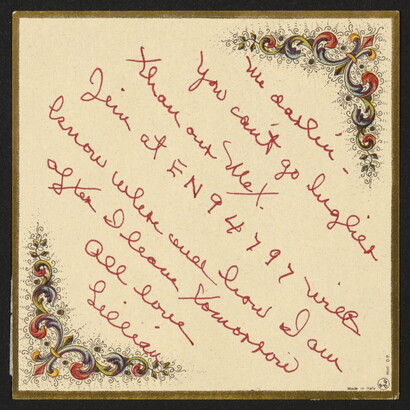 me darlin -
You can't go higher
than our Met.
Jim at EN 9 4797 will
know where and how I am
after I leave tomorrow
All love
Lillian
Made in Italy
Mod. D P